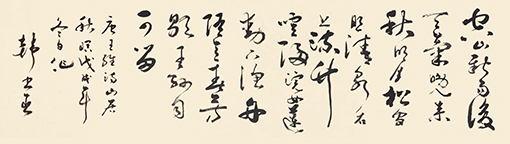 空山新雨後
天氣晚来
秋明月松間
照清泉石
上流竹
喧歸浣女蓮
動下漁舟
随意春芳
歇王孫自
可留
唐王維詩山居
秋暝戊戌年
冬日
韓